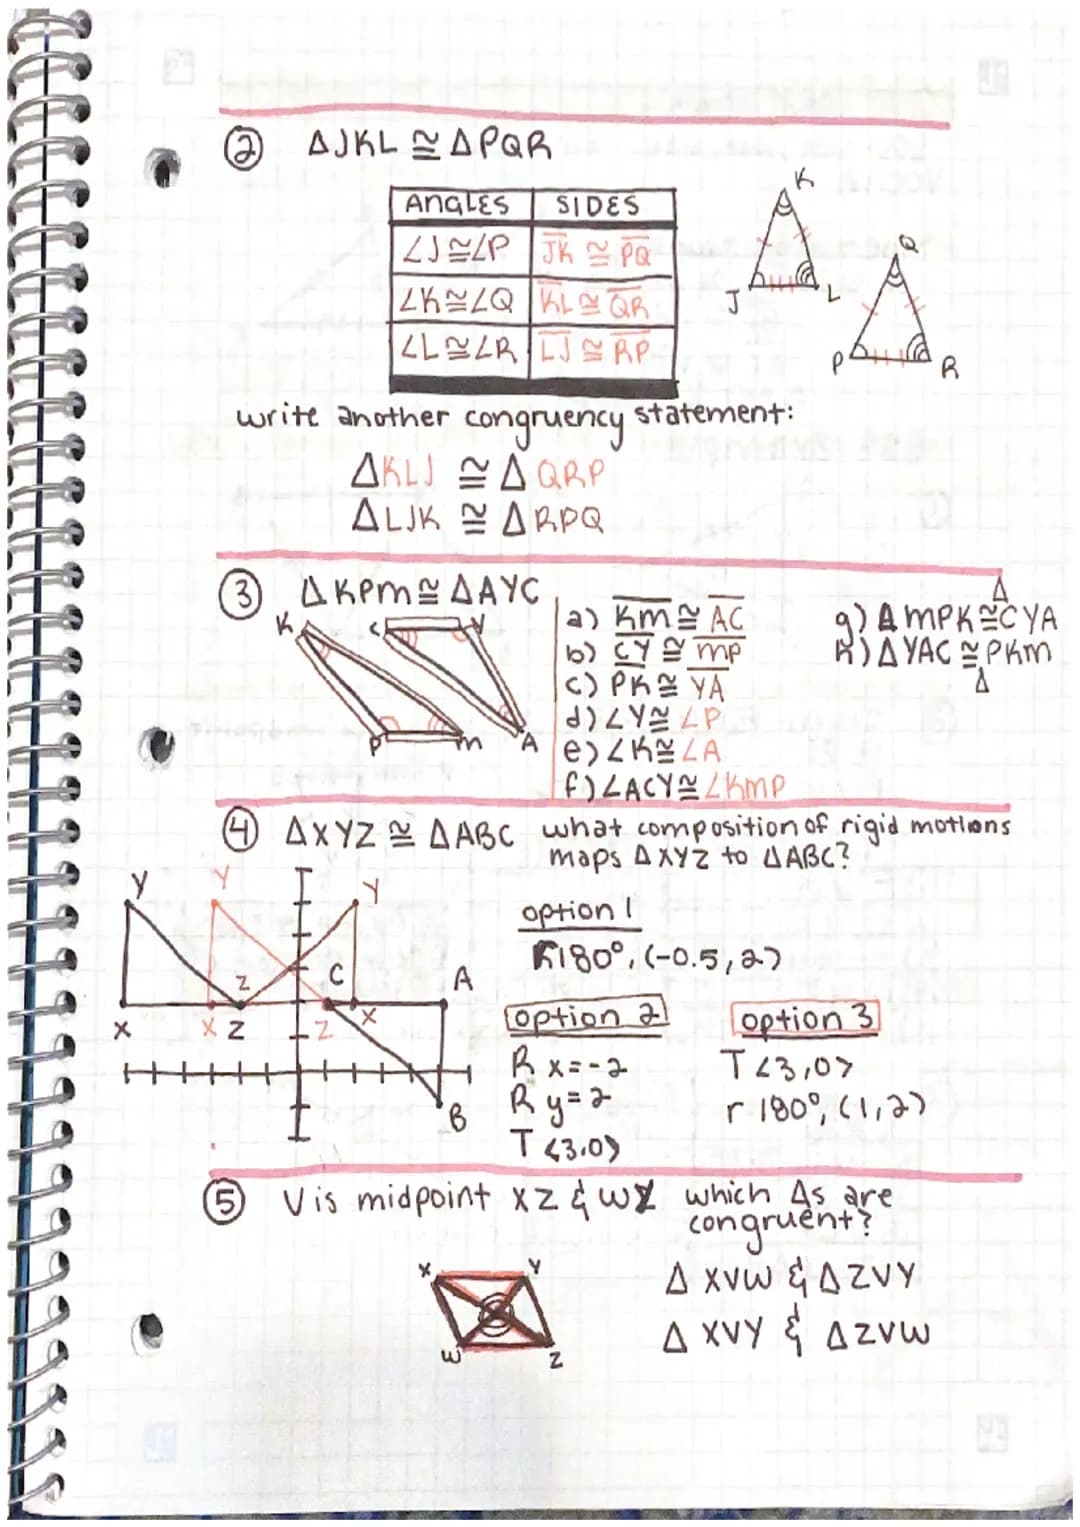 ② ΔJKL ≅ ΔPQR
ANGLES SIDES
∠J≅∠P JK ≅ PQ
∠K≅∠Q KL ≅ QR
∠L≅∠R LJ ≅ RP
K
J L
Q
P R
write another congruency statement:
ΔKLJ ≅ Δ QRP
ΔLJK ≅ ΔRPQ
③ ΔKPM≅ ΔAYC
K C Y
P M A
a) KM≅ AC
b) CY ≅ MP
c) PK≅ YA
d) ∠Y≅ ∠P
e) ∠K≅ ∠A
f) ∠ACY≅ ∠KMP
Δ
g) Δ MPK≅CYA
h) Δ YAC ≅ PKM
Δ
④ ΔXYZ ≅ ΔABC what composition of rigid motions
maps ΔXYZ to ΔABC?
Y Y Y
Z C A
X X Z Z X
B
option 1
r180°, (-0.5, 2)
option 2
R x=-2
R y=2
T <3,0>
option 3
T <3,0>
r 180°, (1,2)
⑤ V is midpoint XZ & WY which Δs are
congruent?
X Y
W Z
Δ XVW & ΔZVY
Δ XVY & ΔZVW